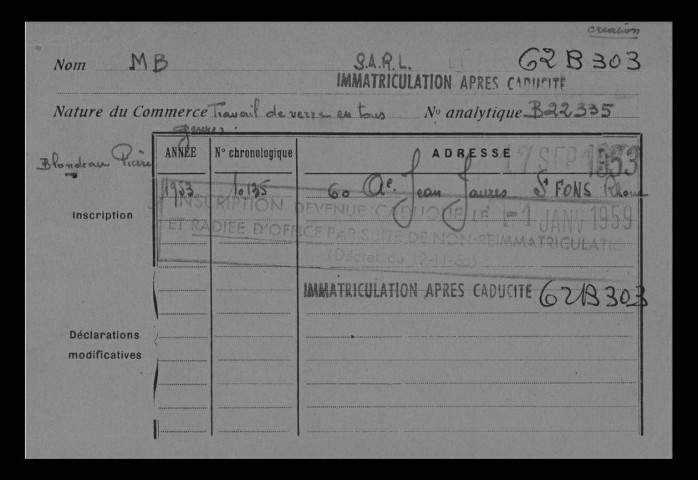 création
Nom MB S.A.R.L. 62 B 303
IMMATRICULATION APRES CADUCITE
Nature du Commerce Travail de verre en tous No analytique B22335
genres.
Blondeau Pierre
ANNÉE No chronologique ADRESSE 17 SEP 1953
1953 60 Ae. Jean Jaurès St FONS Rhône
Inscription
INSCRIPTION DEVENUE CADUQUE LE 1 JANV 1959
ET RADIEE D'OFFICE PAR SUITE DE NON-REIMMATRICULATIO
IMMATRICULATION APRES CADUCITE 62B303
Déclarations
modificatives